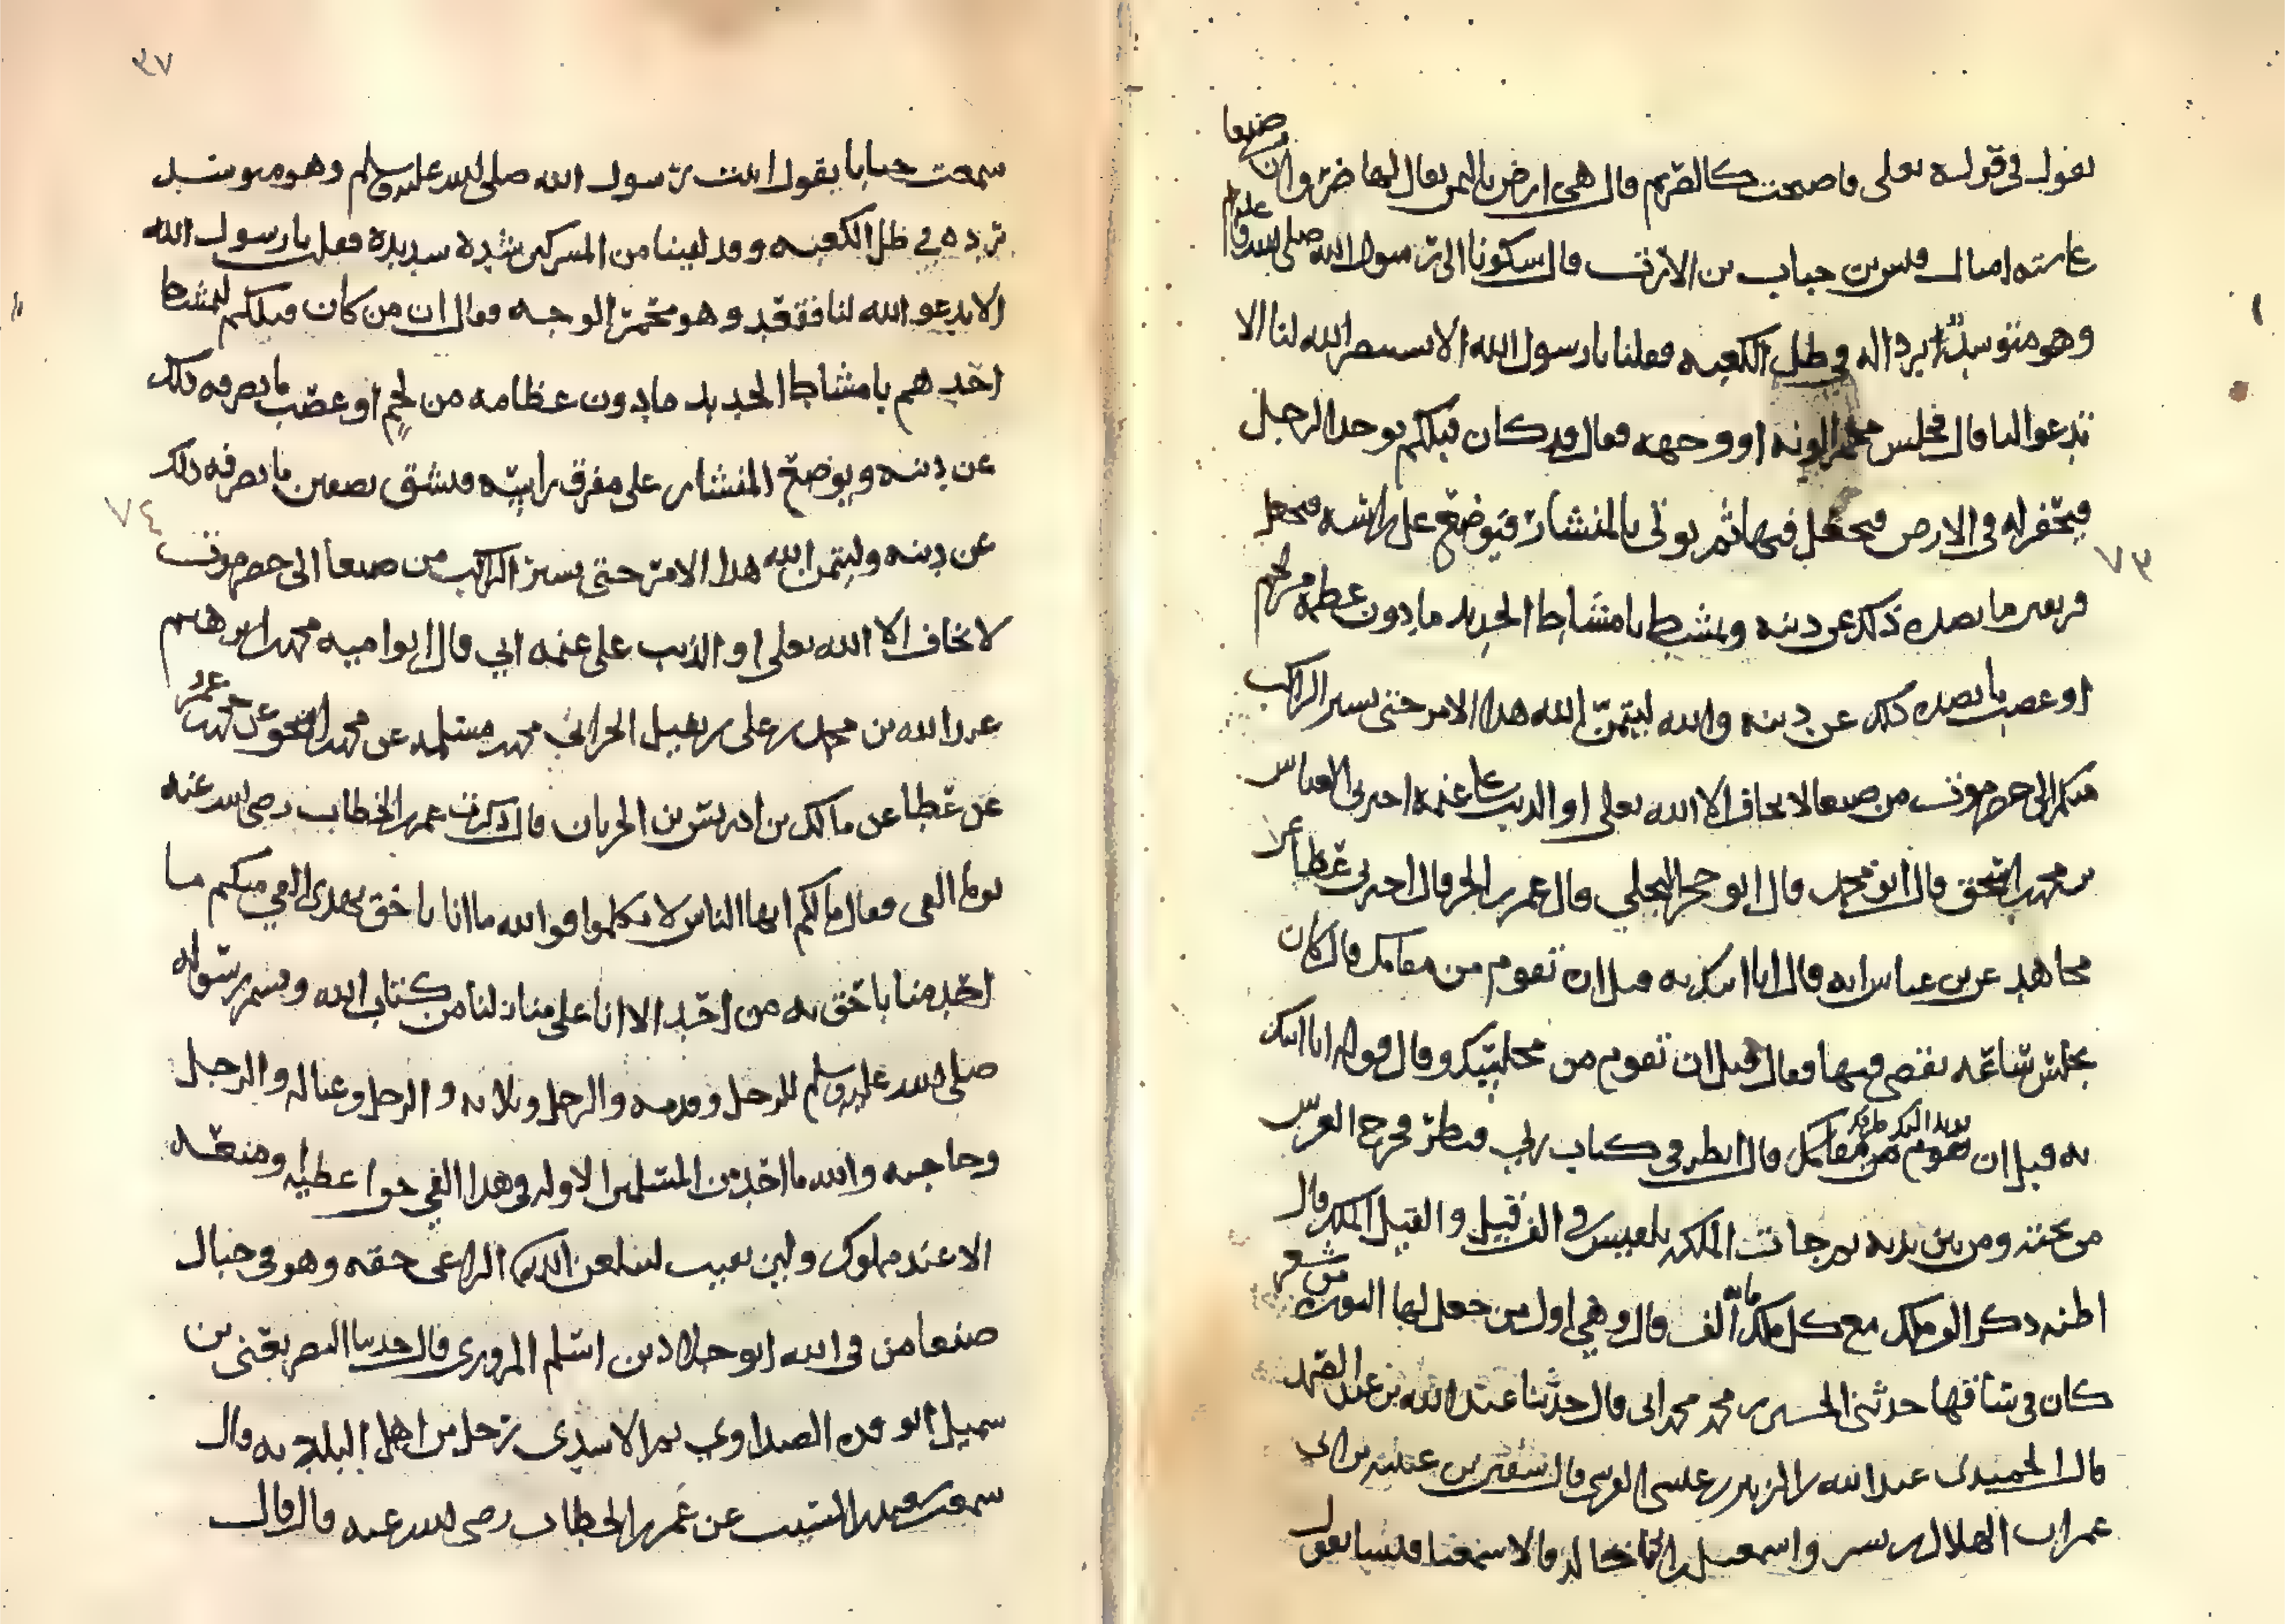 يقول في قوله تعالى فاصبحت كالصريم قال هي ارض باليمن يقال لها ضروان صنعا
قيس بن خباب بن الارت قال شكونا الى رسول الله صلى الله عليه وسلم
وهو متوسدا بردا له في ظل الكعبة فقلنا يا رسول الله الا تستنصر الله لنا الا
تدعو لنا قال فجلس محمرا لونه او وجهه فقال قد كان قبلكم يوخذ الرجل
فيحفر له في الارض فيجعل فيها ثم يوتى بالمنشار فيوضع على راسه فيجعل
فرقتين ما يصده ذلك عن دينه ويمشط بامشاط الحديد ما دون عظمه من لحم
او عصب ما يصده ذلك عن دينه والله ليتمن الله هذا الامر حتى يسير الراكب
منكم الى حضرموت من صنعا لا يخاف الا الله تعالى او الذيب على غنمه اخبرني العباس
بن محمد بن اسحق قال ابو محمد قال ابو حجر البجلي قال عمر بن الحر قال اخبرني عطا عن
مجاهد عن بن عباس انه قال انا اتيك به قبل ان تقوم من مقامك قال كان
يجلس ساعة يقضي فيها فقال قبل ان تقوم من مجلسك وقال قوله انا اتيك
به قبل ان يرتد اليك طرفك قال انظر في كتاب ربي فنظر فخرج العرش
من تحته ومن بين يديه ثم جات الملكة بلقيس في الف قيل والقيل الملك قال
اظنه ذكر الو ملك مع كل ملك ماية الف قال وهي اول من جعل لها النورة من شعر
كان في ساقها حدثني الحسين بن محمد محمد ابي قال حدثنا عبد الله بن عبد الصمد
قال الحميدي عبد الله بن الزبير بن عيسى القرشي قال سفين بن عيينة بن ابي
عمران الهلالي بن بشر واسمعيل بن ابي خالد قالا سمعنا قيسا يقول
٩٧
سمعت خبابا يقول اتيت رسول الله صلى الله عليه وسلم وهو متوسد
برده في ظل الكعبه وقد لقينا من المشركين شدة شديدة فقلت يا رسول الله
الا تدعو الله لنا فقعد وهو محمر الوجه فقال ان من كان قبلكم ليمشط
احدهم بامشاط الحديد ما دون عظامه من لحم او عصب ما يصرفه ذلك
عن دينه ويوضع المنشار على مفرق راسه فيشق نصفين ما يصرفه ذلك
عن دينه وليتمن الله هذا الامر حتى يسير الراكب من صنعا الى حضرموت
لا يخاف الا الله تعالى او الذيب على غنمه ابي قال ابو اميه محمد بن ابرهيم
عبد الله بن محمد بن علي بن نفيل الحراني محمد بن سلمه عن محمد بن اسحق عن محمد بن عمرو
عن عطا عن مالك بن اوس بن الحدثان قال ذكرت عمر بن الخطاب رضي الله عنه
يوما الفي فقال مالكم ايها الناس لا تكلموا فوالله ما انا باحق بهذا الفي منكم ما
احد منا باحق به من احد الا انا على منازلنا من كتاب الله وقسم رسوله
صلى الله عليه وسلم للرجل وقدمه والرجل وبلاه والرجل وعياله والرجل
وحاجته والله ما احد من المسلمين الا وله في هذا الفي حق اعطيه ومنعه
الا عند مملوك ولين بقيت ليبلغن الراعي حقه وهو في جبال
صنعا من في الله ابو جلاد بن اسلم المروزي قال حدثنا النضر يعني بن
سهيل ابو قرة الصداوي ثم الاسدي رجل من اهل البادية قال
سمعت سعيد بن المسيب عن عمر بن الخطاب رضي الله عنه قال قال
٧٣
٧٤